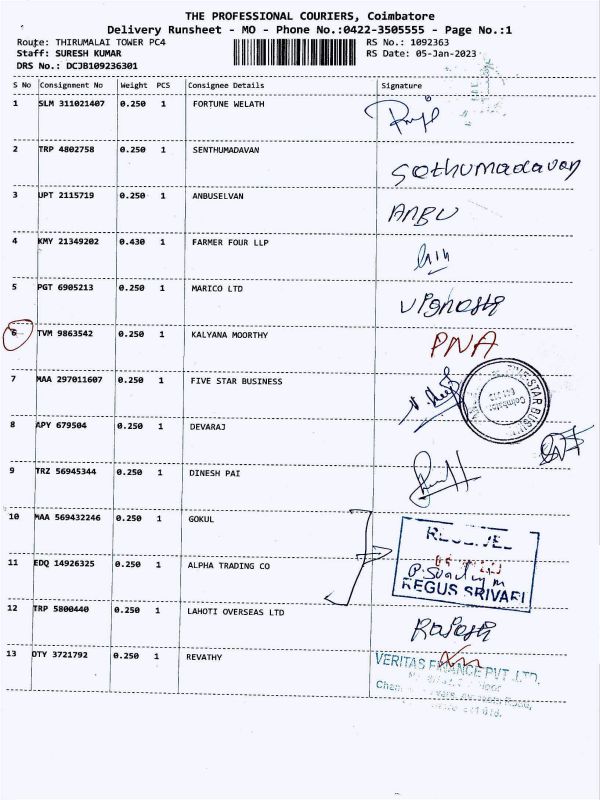 THE PROFESSIONAL COURIERS, Coimbatore
Delivery Runsheet - MO - Phone No.:0422-3505555 - Page No.:1
Route: THIRUMALAI TOWER PC4 RS No.: 1092363
Staff: SURESH KUMAR RS Date: 05-Jan-2023
DRS No.: DCJB109236301
S No Consignment No Weight PCS Consignee Details Signature
1 SLM 311021407 0.250 1 FORTUNE WELATH
2 TRP 4802758 0.250 1 SENTHUMADAVAN Sethumadavan
3 UPT 2115719 0.250 1 ANBUSELVAN ANBU
4 KMY 21349202 0.430 1 FARMER FOUR LLP
5 PGT 6905213 0.250 1 MARICO LTD Vignesh
6 TVM 9863542 0.250 1 KALYANA MOORTHY PNA
7 MAA 297011607 0.250 1 FIVE STAR BUSINESS
8 APY 679504 0.250 1 DEVARAJ
9 TRZ 56945344 0.250 1 DINESH PAI
10 MAA 569432246 0.250 1 GOKUL RECEIVED
11 EDQ 14926325 0.250 1 ALPHA TRADING CO
REGUS SRIVARI
12 TRP 5800440 0.250 1 LAHOTI OVERSEAS LTD Rajesh
13 DTY 3721792 0.250 1 REVATHY
VERITAS FINANCE PVT .LTD,